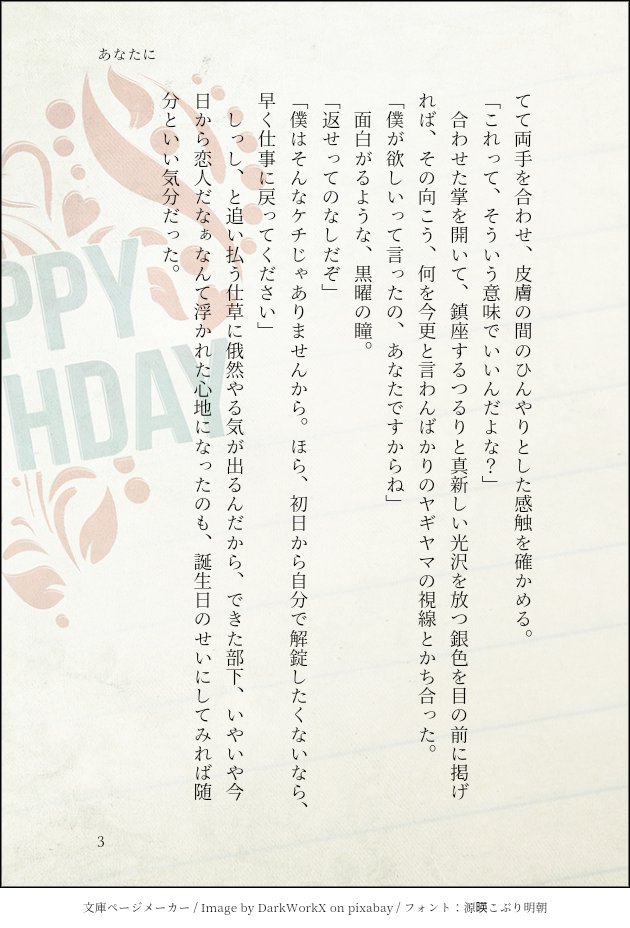 あなたに
てて両手を合わせ、皮膚の間のひんやりとした感触を確かめる。
「これって、そういう意味でいいんだよな？」
合わせた掌を開いて、鎮座するつるりと真新しい光沢を放つ銀色を目の前に掲げ
れば、その向こう、何を今更と言わんばかりのヤギヤマの視線とかち合った。
「僕が欲しいって言ったの、あなたですからね」
面白がるような、黒曜の瞳。
「返せってのなしだぞ」
「僕はそんなケチじゃありませんから。ほら、初日から自分で解錠したくないなら、
早く仕事に戻ってください」
しっし、と追い払う仕草に俄然やる気が出るんだから、できた部下、いやいや今
日から恋人だなぁなんて浮かれた心地になったのも、誕生日のせいにしてみれば随
分といい気分だった。
PPY
HDAY
3
文庫ページメーカー / Image by DarkWorkX on pixabay / フォント：源暎こぶり明朝